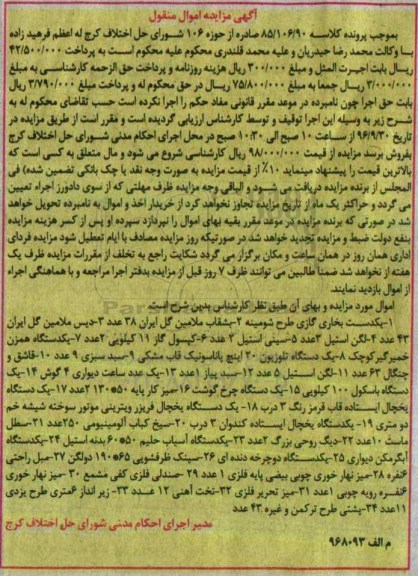 آگهی مزایده اموال منقول
بموجب پرونده کلاسه ۸۵/۱۰۶/۹۰ صادره از حوزه ۱۰۶ شورای حل اختلاف کرج له اعظم فرهید زاده
با وکالت محمد رضا حیدریان و علیه محمد قلندری محکوم علیه محکوم است به پرداخت ۴۲/۵۰۰/۰۰۰
ریال بابت اجرت المثل و مبلغ ۳۰۰/۰۰۰ ریال هزینه روزنامه و پرداخت حق الزحمه کارشناسی به مبلغ
۳/۰۰۰/۰۰۰ ریال جمعا به مبلغ ۷۵/۸۰۰/۰۰۰ ریال در حق محکوم له و پرداخت مبلغ ۳/۷۹۰/۰۰۰ ریال
بابت حق اجرا چون نامبرده در موعد مقرر قانونی مفاد حکم را اجرا نکرده است حسب تقاضای محکوم له به
شرح زیر به وسیله این اجرا توقیف و توسط کارشناس ارزیابی گردیده است و مقرر است از طریق مزایده در
تاریخ ۹۶/۹/۳۰ از ساعت ۱۰ صبح الی ۱۰:۳۰ صبح در محل اجرای احکام مدنی شورای حل اختلاف کرج
بفروش برسد مزایده از قیمت ۹۸/۰۰۰/۰۰۰ ریال کارشناسی شروع می شود و مال متعلق به کسی است که
بالاترین قیمت را پیشنهاد مینماید ۱۰٪ از قیمت مزایده به صورت وجه نقد یا چک بانکی تضمین شده) فی
المجلس از برنده مزایده دریافت می شود و الباقی وجه مزایده ظرف مهلتی که از سوی دادورز اجراء تعیین
می گردد و حداکثر یک ماه از تاریخ مزایده تجاوز نخواهد کرد از خریدار اخذ و اموال به نامبرده تحویل خواهد
شد در صورتی که برنده مزایده در موعد مقرر بقیه بهای اموال را نپردازد سپرده او پس از کسر هزینه مزایده
بنفع دولت ضبط و مزایده تجدید خواهد شد در صورتیکه روز مزایده مصادف با ایام تعطیل شود مزایده فردای
اداری همان روز در همان ساعت و مکان برگزار می گردد شکایت راجع به تخلف از مقررات مزایده ظرف یک
هفته از نخواهد شد ضمنا طالبین می توانند ظرف ۷ روز قبل از مزایده بدفتر اجرا مراجعه و با هماهنگی اجراء
از اموال بازدید نمایند.
اموال مورد مزایده و بهای آن طبق نظر کارشناس بدین شرح است
۱-یکدست بخاری گازی طرح شومینه ۲-بشقاب ملامین گل ایران ۳۸ عدد ۳-دیس ملامین گل ایران
۴۳ عدد ۴-لگن استیل ۳عدد ۵-سینی استیل ۲ عدد ۶-کپسول گاز ۱۱ کیلویی ۲عدد ۷-یکدستگاه همزن
خمیرگیرکوچک ۸-یک دستگاه تلوزیون ۲۰ اینچ پاناسونیک قاب مشکی ۹-سبد سبزی ۹ عدد ۱۰-قاشق و
چنگال ۶۳ عدد ۱۱-لگن استیل ۵ عدد ۱۲-سبد پیاز ۱عدد ۱۳-یک عدد ساعت دیواری ۴ گوش ۱۴-یک
دستگاه باسکول ۱۰۰ کیلویی ۱۵-یک دستگاه چرخ گوشت ۱۶-میز کار پایه ۵۰*۱۳۰ ۲عدد ۱۷-یک دستگاه
یخچال ایستاده قاب قرمز رنگ ۳ درب ۱۸- یک دستگاه یخچال فریزر ویترینی موتور سوخته شیشه خم
دو متری ۱۹- یکدستگاه یخچال ایستاده کندوان ۳ درب ۲۰-سیخ کباب آلومینیومی ۲۵۰عدد ۲۱-سطل
ماست ۱۰عدد ۲۲-دیگ روحی بزرگ ۲عدد ۲۳-یکدستگاه آسیاب حلیم ۵۰*۶۰ بدنه استیل ۲۴-یکدستگاه
آبگرمکن دیواری ۲۵-یکدستگاه دوچرخه دنده ای ۲۶-سینک ظرفشویی ۶۵*۱۹۰ دولگن ۲۷-مبل راحتی
۶نفره ۲۸-میز نهار خوری چوبی بیضی پایه فلزی ۱ عدد ۲۹ -صندلی فلزی کفی مشمع ۳۰ -میز نهار خوری
۶نفره رویه چوبی ۱عدد ۳۱-میز تحریر فلزی ۳۲-تخت آهنی ۱۲ عدد ۳۳- زیر انداز ۶متری طرح یزدی
۱۱عدد ۳۴-پشتی طرح ترکمن و غیره ۴۳ عدد
مدیر اجرای احکام مدنی شورای حل اختلاف کرج
م الف ۹۶۸۰۹۳